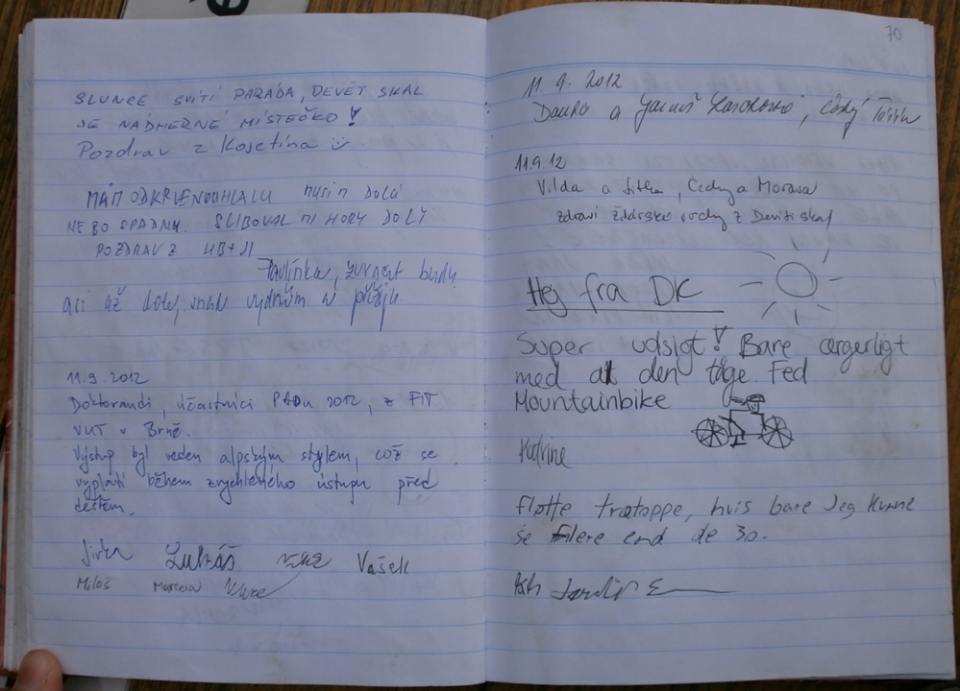 SLUNCE SVÍTÍ PARÁDA, DEVĚT SKAL
JE NÁDHERNÉ MÍSTEČKO!
Pozdrav z Kojetína
MUSÍM DOLŮ
NEBO SPADNU. SLIBOVAL MI HORY DOLY
POZDRAV Z
Pavlínka,
až dole, snad
11.9.2012
Doktorandi, účastníci PADu 2012, z FIT
VUT v Brně.
Výstup byl veden alpským stylem, což se
vyplatí během zrychleného ústupu před
deštěm.
Jirka Lukáš Vašek
Miloš Marcela
70
11.9.2012
Danka a
11.9.12
Vilda a Jitka, Čechy a Morava
zdraví Žďárské vrchy z Devíti skal
Hej fra DK
Super udsigt! Bare ærgerligt
med al den tåge. Fed
Mountainbike
Katrine
Flotte trætoppe, hvis bare jeg kunne
se flere end de 30.